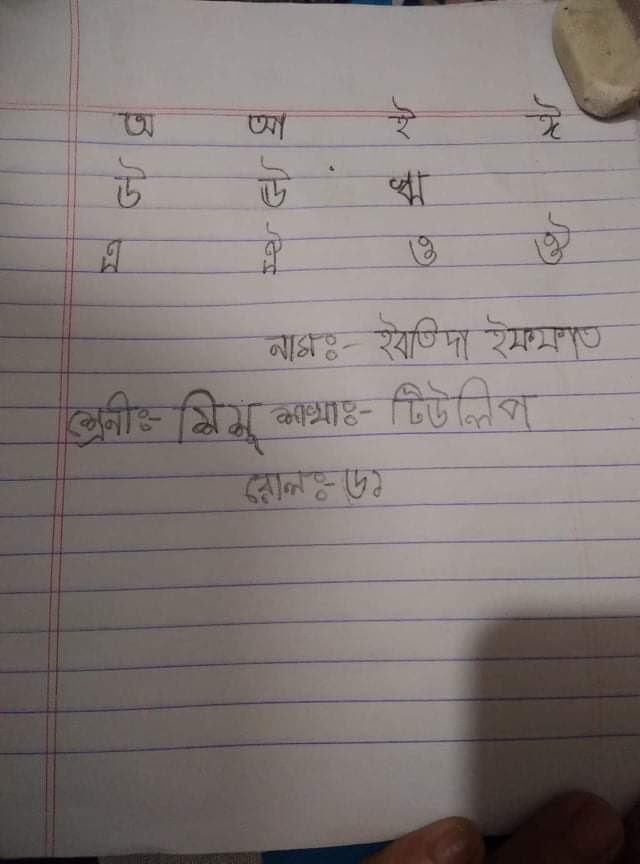 অ আ ই ঈ
উ ঊ ঋ
এ ঐ ও ঔ
নামঃ- ইবতিদা
শ্রেনীঃ- শিশু শাখাঃ- টিউলিপ
রোলঃ- ৬১